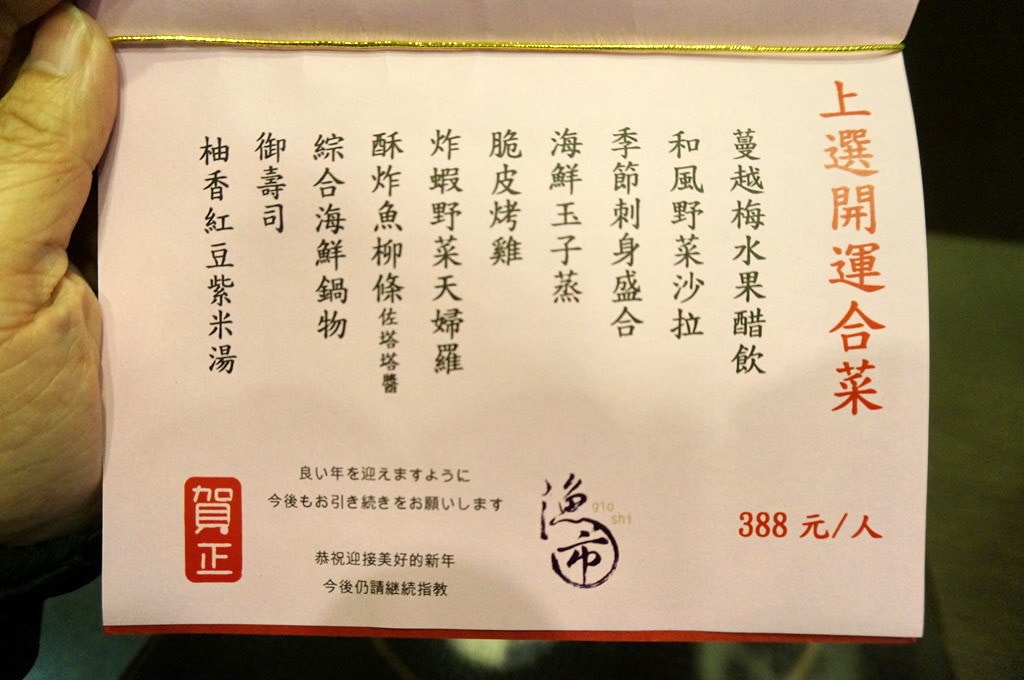 上選開運合菜
蔓越梅水果醋飲
和風野菜沙拉
季節刺身盛合
海鮮玉子蒸
脆皮烤雞
炸蝦野菜天婦羅
酥炸魚柳條佐塔塔醬
綜合海鮮鍋物
御壽司
柚香紅豆紫米湯
388 元/人
漁市
gio
shi
良い年を迎えますように
今後もお引き続きをお願いします
恭祝迎接美好的新年
今後仍請継続指教
賀正